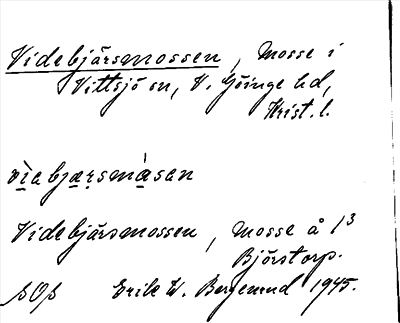 Videbjärsmossen, Mosse i
Vittsjö sn, V. Göinge hd,
Krist. l.
vìabjæṛsmàsan
Videbjärsmossen, Mosse å 1³
Björstorp.
SOS Erik W. Bergerud 1945.